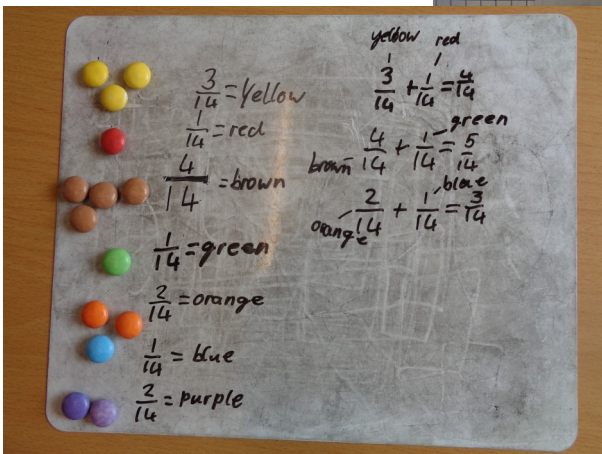 3/14 = Yellow
1/14 = red
4/14 = brown
1/14 = green
2/14 = orange
1/14 = blue
2/14 = purple
yellow red
3/14 + 1/14 = 4/14
green
brown 4/14 + 1/14 = 5/14
blue
orange 2/14 + 1/14 = 3/14